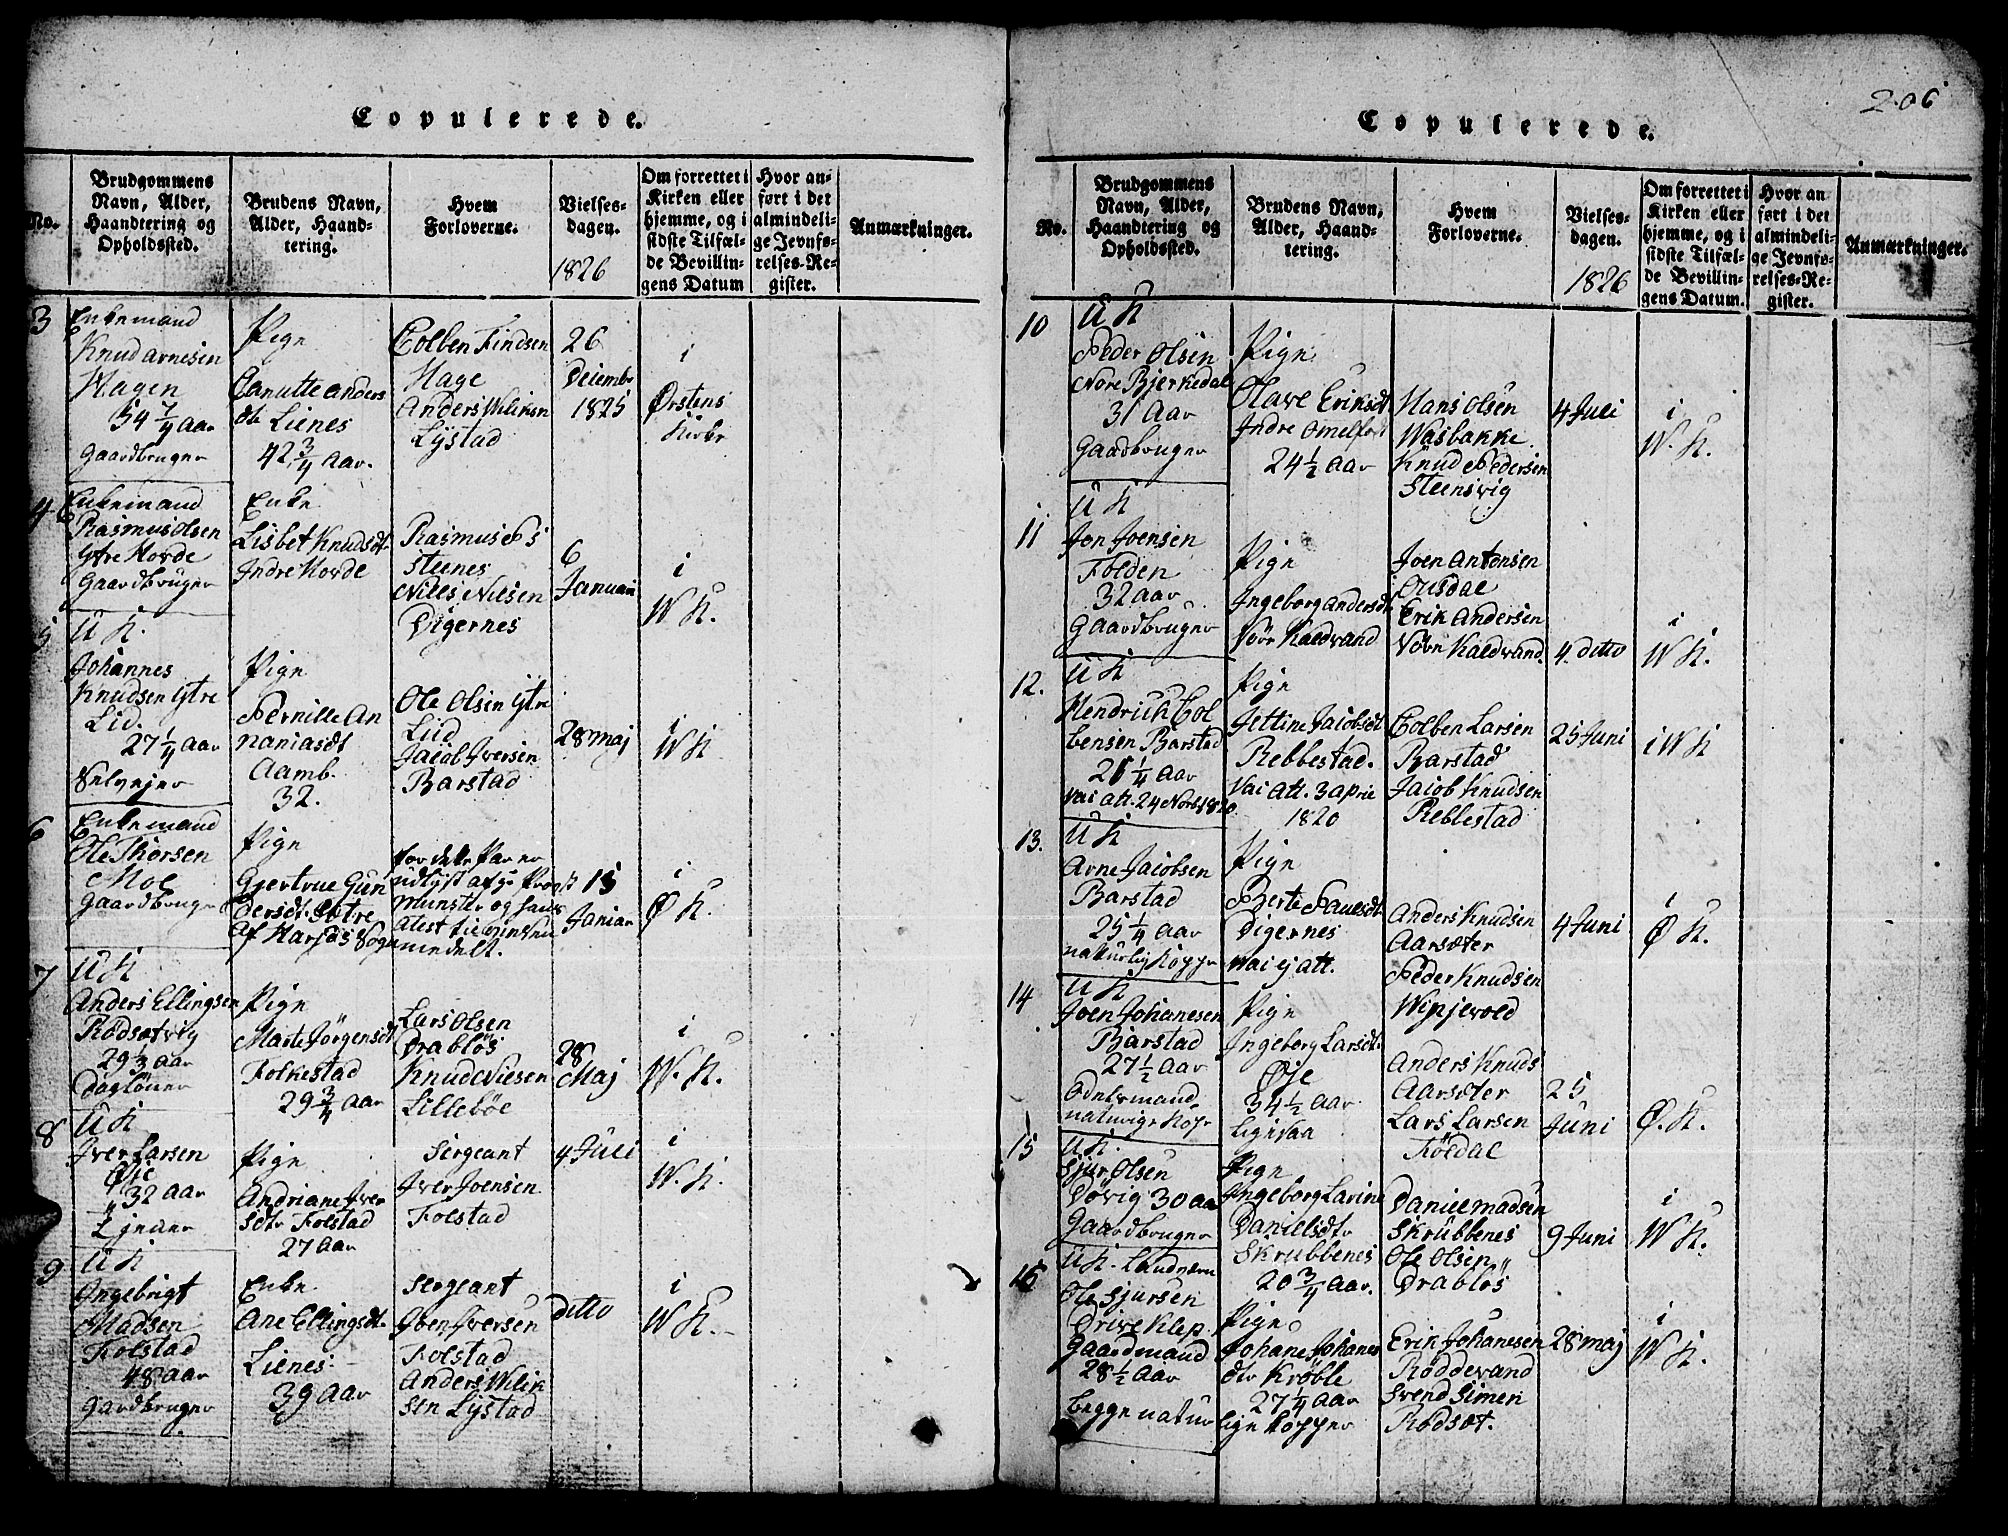 Copulerede.
No.
Brudgommens
Navn, Alder,
Haandtering og
Opholdssted.
Brudens Navn,
Alder, Haand-
tering.
Hvem
Forloverne.
Vielses-
dagen.
1826
Om forrettet i
Kirken eller
hjemme, og i
sidste Tilfæl-
de Bevillin-
gens Datum
Hvor an-
ført i det
almindeli-
ge Jevnfø-
relses-Re-
gister.
Anmærkninger.
3
Enkemand
Knud Arnesen
Hagen
54 1/4 Aar
Gaardbruger
Pige
Anders
dtr Lienes
42 3/4 Aar.
Colben Findsen
Hage
Anders Wiliksen
Lystad
26
Decembr
1825
i
Ørstens
Kirke
4
Enkemand
Rasmus Olsen
Ytre Hovde
Gaardbruger
Enke
Lisbet Knudsdt
Indre Hovde
Rasmus
Steenes
Niles Nilsen
Digernes
6
Januari
i
W K.
5
U K.
Johannes
Knudsen Ytre
Lid.
27 1/4 Aar
Selvejer
Pige
Pernille An
naniasdt
Aamb.
32.
Ole Olsin Ytre
Liid
Jacob Iversen
Barstad
28 Maj
i
W K
6
Enkemand
Ole Thorsen
Moe
Gaardbruger
Pige
Gjertrue Gun
dersdt Sætre
af Harjds Sogn
For dette Par er
udlyst af
Munster og hans
atest til
meddelt.
15
Januar
i
Ø K.
7
U K
Anders Ellingsen
Rödsætvig
29 1/3 Aar
Dagløner
Pige
Marte Jörgensdt
Folkestad
29 3/4 Aar
Lars Olsen
Drabløs
Knud Nilsen
Lillebøe
28
Maj
i
W. K.
8
U K
Iver Larsen
Øje
32 Aar
Pige
Andriane Iver
sdtr Folstad
27 Aar
Sergeant
Iver Joensen
Folstad
4 Juli
i
W. K.
9
U K
Ingebrigt
Madsen
Folstad
48 Aar
Gardbruger
Enke
Ane Ellingsdt.
Lienes
39 Aar
Sergeant
Iversen
Folstad
Anders Wilik
sen Lystad
ditto
i
W K.
206
Copulerede.
No.
Brudgommens
Navn, Alder,
Haandtering og
Opholdssted.
Brudens Navn,
Alder, Haand-
tering.
Hvem
Forloverne.
Vielses-
dagen.
1826
Om forrettet i
Kirken eller
hjemme, og i
sidste Tilfæl-
de Bevillin-
gens Datum.
Hvor an
ført i det
almindeli-
ge Jevnfø-
relses-Re-
gister.
Anmærkninger.
10
U K
Peder Olsin
Nore Bjerkedal
31 Aar
Gaardbruger
Pige
Olave Eriksdt
Indre Omelfot
24 1/2 Aar
Hans Olsen
Wasbakke
Knud Pedersen
Steensvig
4 Juli
i
W. K.
11
U K
Jon Joensen
Folden
32 Aar
Gaardbruger
Pige
Ingeborg Andersdt
Kaldvand
Joen Antonsen
Ousdal
Erik Andersen
Kaldvand.
4. ditto
i
W K.
12.
U K
Hendrick Col
bensen Barstad
26 1/4 Aar
Vai att. 24
Pige
Jettine Jacobsdt
Rebbestad.
Vai att. 3 April
1820
Colben Larsen
Barstad
Jacob Knudsen
Reblestad
25 Juni
i W K
13.
U K
Arne Jacobsen
Barstad
25 1/4 Aar
naturlig Kopp
Pige
Berte Paulsdt
Digernes
Vai ej att.
Anders Knudsen
Aarsæter
Peder Knudsen
4 Juni
i
Ø K.
14
U K
Joen Johanesen
Barstad
27 1/2 Aar
Odelsmand
Pige
Ingeborg Larsdt.
Øje
34 1/2 Aar.
Anders Knuds
Aarsøter
Lars Larsen
Földal
25
Juni
Ø. K.
15
U K.
Sjur Olsen
Dövig 30 Aar
Gaardbruger
Pige
Ingeborg Lavine
Danielsdtr
Skrubbenes
20 3/4 Aar.
Daniel Madsen
Skrubbenes
Ole Olsin
Drabløs
9 Juni
i
W K.
16
U K.
Ole Sjursen
Driveklep.
Gaardmand
28 1/2 Aar
begge natur
Pige
Johane Johanes
dtr Kröble
27 1/4 Aar
lige Kopper
Erik Johanesen
Röddevand
Svend Simen
Rödsæt.
28 Maj
i
W K.